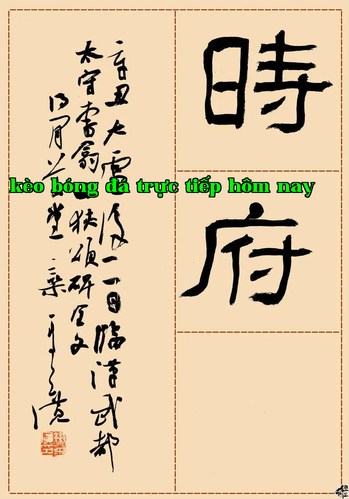 時
府
辛丑大雪後一日臨漢武都
太守李翕西狹頌碑全文
kèo bóng đá trực tiếp hôm nay